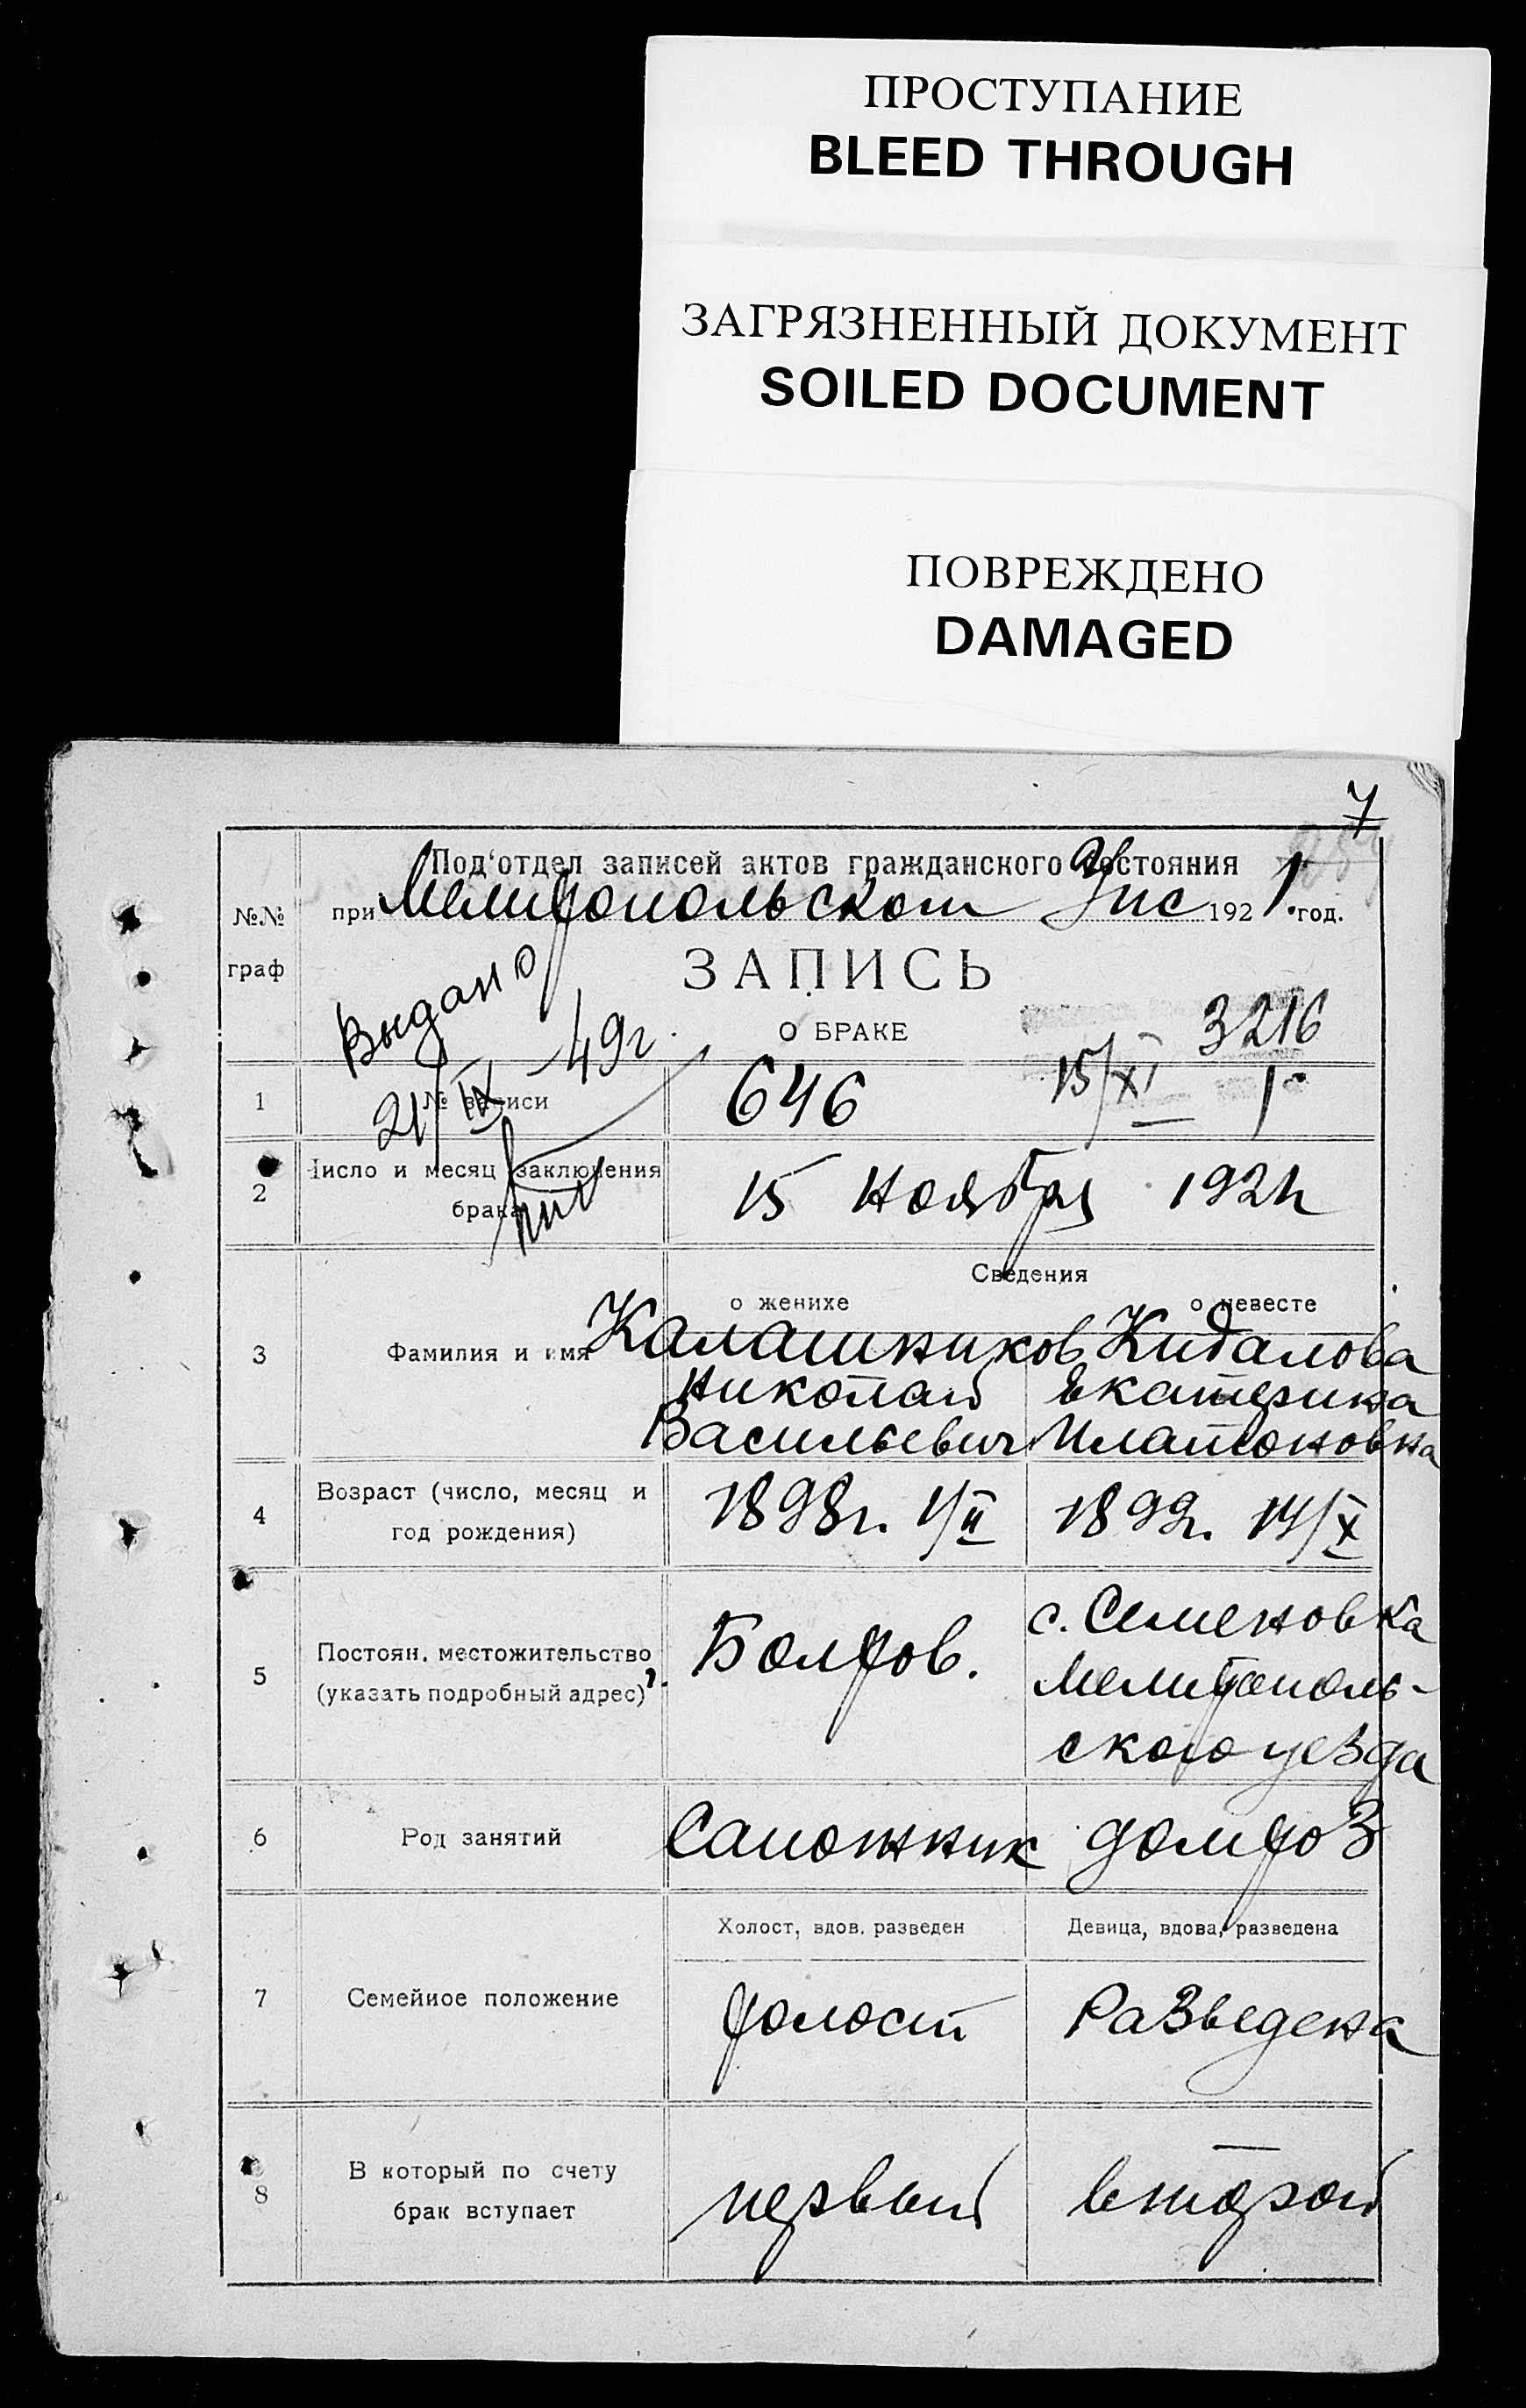 ПРОСТУПАНИЕ
BLEED THROUGH
ЗАГРЯЗНЕННЫЙ ДОКУМЕНТ
SOILED DOCUMENT
ПОВРЕЖДЕНО
DAMAGED
7
Под'отдел записей актов гражданского состояния
при Мелитопольском Уис 1921. год.
№№
граф
ЗАПИСЬ
О БРАКЕ
Выдано
21/IX - 49г.
3216
15/XI 1
1 № записи 646
2 Число и месяц заключения
брака
15 Ноября 1921
Сведения
о женихе о невесте
3 Фамилия и имя Калашников Кидалова
Николай Екатерина
Васильевич Платоновна
4 Возраст (число, месяц и
год рождения)
1898г. 1/II 1899г. 14/X
5 Постоян. местожительство
(указать подробный адрес)
Болгов. с. Семеновка
Мелитополь-
ского уезда
6 Род занятий Сапожник домхоз
Холост, вдов. разведен Девица, вдова, разведена
7 Семейное положение холост Разведена
8 В который по счету
брак вступает
первый второй